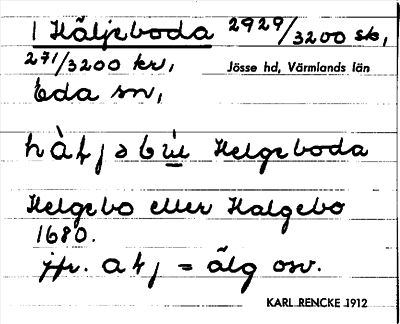 1 Häljeboda 2929/3200 sk,
271/3200 kr,
Jösse hd, Värmlands län
Eda sn,
Helgeboda
Helgebo eller Halgebo
1680.
jfr. = älg osv.
KARL RENCKE 1912